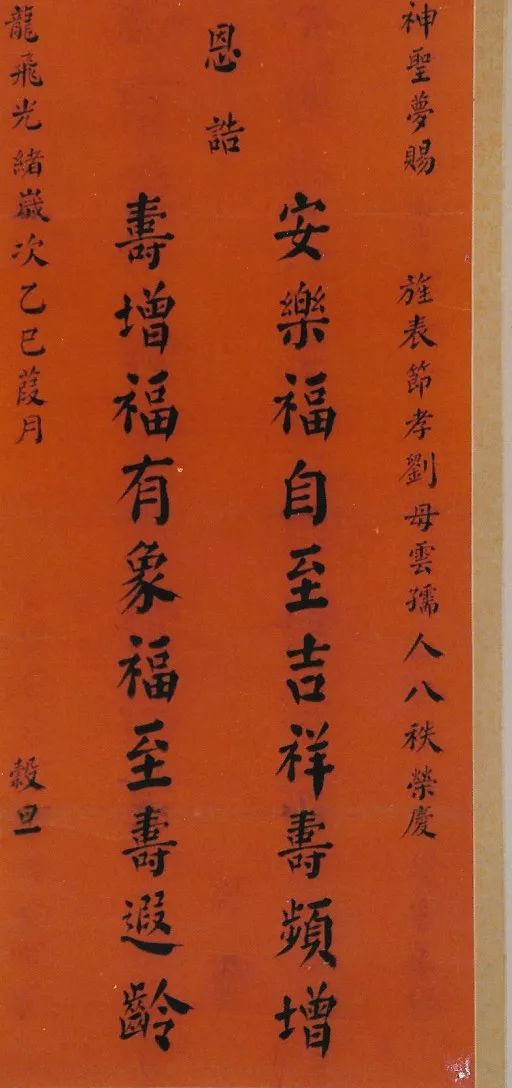 神聖夢賜
旌表節孝劉母雲孺人八秩榮慶
安樂福自至吉祥壽頻增
恩誥
壽增福有象福至壽遐齡
龍飛光緒歲次乙巳葭月
穀旦